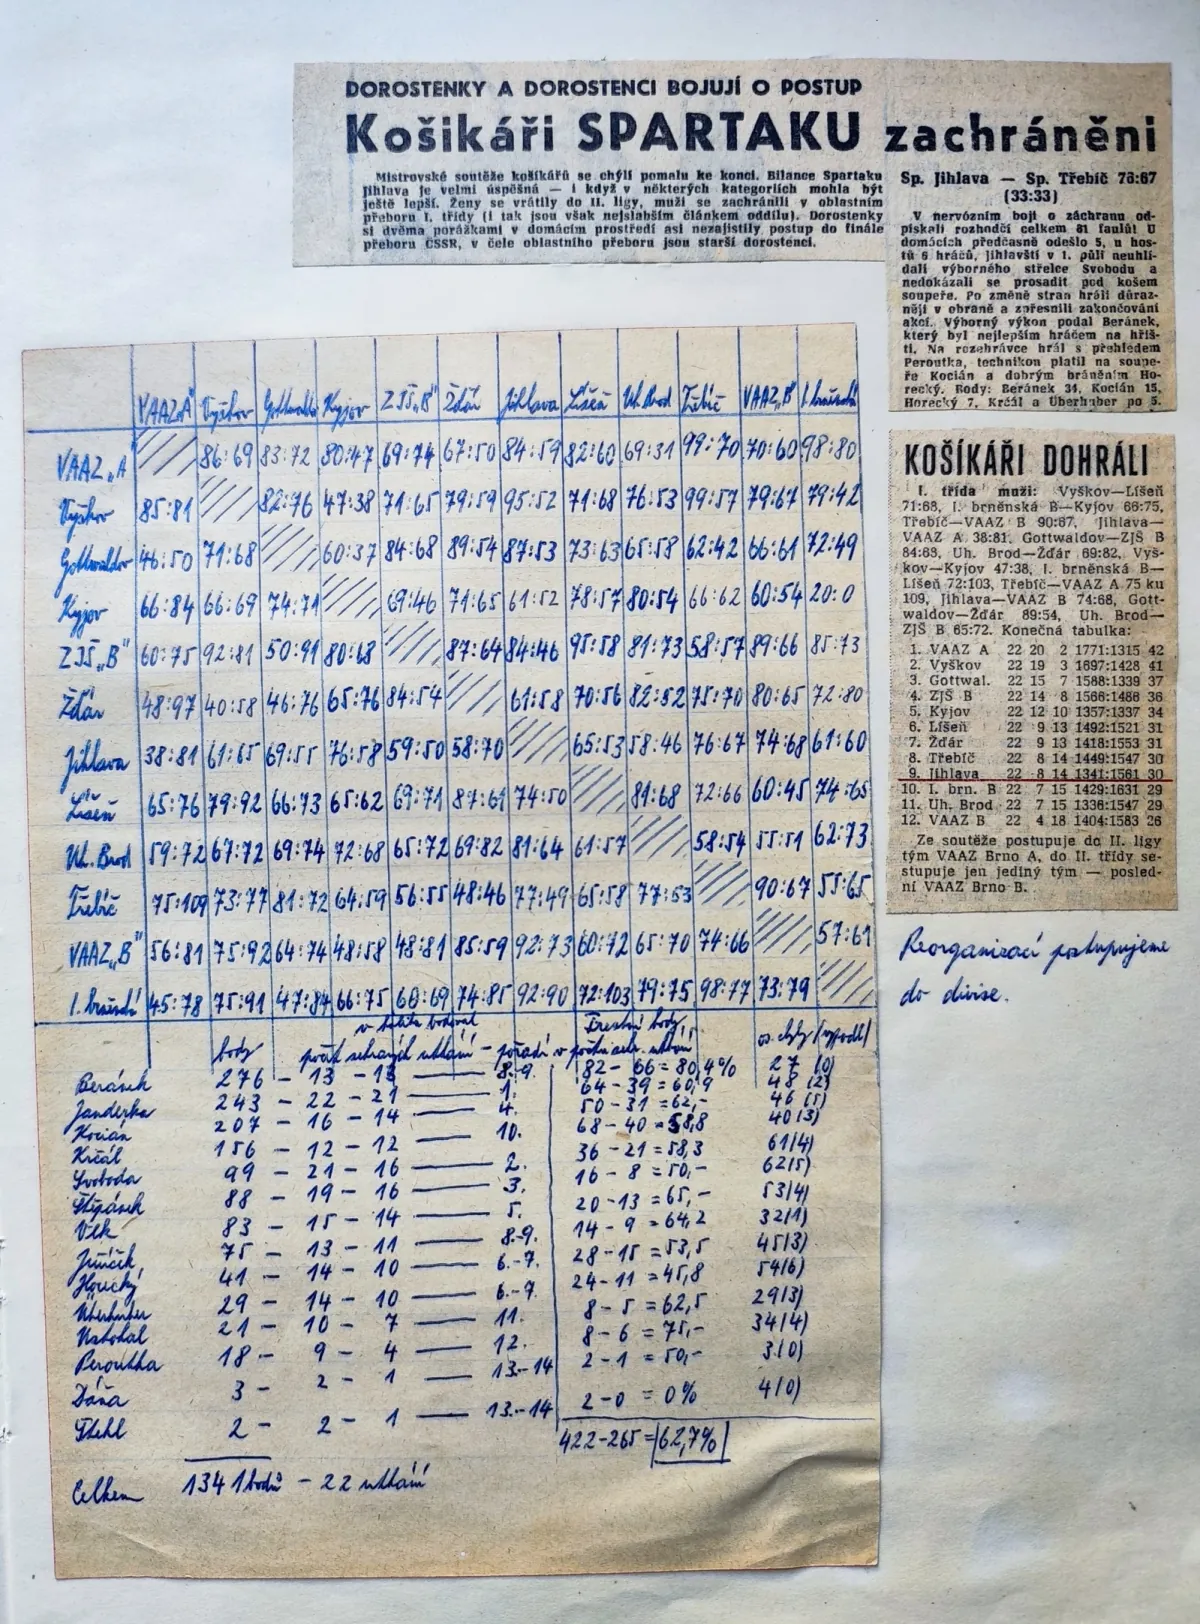 DOROSTENKY A DOROSTENCI BOJUJÍ O POSTUP
Košikáři SPARTAKU zachráněni
Mistrovské soutěže košíkářů se chýlí pomalu ke konci. Bilance Spartaku
Jihlava je velmi úspěšná — i když v některých kategoriích mohla být
ještě lepší. Ženy se vrátily do II. ligy, muži se zachránili v oblastním
přeboru I. třídy (i tak jsou však nejslabším článkem oddílu). Dorostenky
si dvěma porážkami v domácím prostředí asi nezajistily postup do finále
přeboru ČSSR, v čele oblastního přeboru jsou starší dorostenci.
Sp. Jihlava — Sp. Třebíč 76:67
(33:33)
V nervózním boji o záchranu od-
pískali rozhodčí celkem 81 faulů! U
domácích předčasně odešlo 5, u hos-
tů 6 hráčů, Jihlavští v 1. půli neuhlí-
dali výborného střelce Svobodu a
nedokázali se prosadit pod košem
soupeře. Po změně stran hráli důraz-
něji v obraně a zpřesnili zakončování
akcí. Výborný výkon podal Beránek,
který byl nejlepším hráčem na hřiš-
ti. Na rozehrávce hrál s přehledem
Peroutka, technikou platil na soupe-
ře Kocián a dobrým bráněním Ho-
recký. Body: Beránek 34, Kocián 15,
Horecký 7, Krčál a Überhuber po 5.
KOŠÍKÁŘI DOHRÁLI
I. třída muži: Vyškov—Líšeň
71:68, I. brněnská B—Kyjov 66:75,
Třebíč—VAAZ B 90:67, Jihlava—
VAAZ A 38:81, Gottwaldov—ZJŠ B
84:68, Uh. Brod—Žďár 69:82, Vyš-
kov—Kyjov 47:38, I. brněnská B—
Líšeň 72:103, Třebíč—VAAZ A 75 ku
109, Jihlava—VAAZ B 74:68, Gott-
waldov—Žďár 89:54, Uh. Brod—
ZJŠ B 65:72. Konečná tabulka:
1. VAAZ A 22 20 2 1771:1315 42
2. Vyškov 22 19 3 1697:1428 41
3. Gottwal. 22 15 7 1588:1339 37
4. ZJŠ B 22 14 8 1566:1486 36
5. Kyjov 22 12 10 1357:1337 34
6. Líšeň 22 9 13 1492:1521 31
7. Žďár 22 9 13 1418:1553 31
8. Třebíč 22 8 14 1449:1547 30
9. Jihlava 22 8 14 1341:1561 30
10. I. brn. B 22 7 15 1429:1631 29
11. Uh. Brod 22 7 15 1336:1547 29
12. VAAZ B 22 4 18 1404:1583 26
Ze soutěže postupuje do II. ligy
tým VAAZ Brno A, do II. třídy se-
stupuje jen jediný tým — posled-
ní VAAZ Brno B.
Reorganizací postupujeme
do divise.
VAAZ„A" Vyškov Gottwaldov Kyjov ZJŠ„B" Žďár Jihlava Líšeň Uh. Brod Třebíč VAAZ„B" I. brněnská
VAAZ „A" 86:69 83:72 80:47 69:74 67:50 84:59 82:60 69:31 99:70 70:60 98:80
Vyškov 85:81 82:76 47:38 71:65 79:59 95:52 71:68 76:53 99:57 79:67 79:42
Gottwaldov 46:50 71:68 60:37 84:68 89:54 87:53 73:63 65:58 62:42 66:61 72:49
Kyjov 66:84 66:69 74:71 69:46 71:65 61:52 78:57 80:54 66:62 60:54 20:0
ZJŠ„B" 60:75 92:81 50:91 80:68 87:64 84:46 95:58 81:73 58:57 89:66 85:73
Žďár 48:97 40:58 46:76 65:76 84:54 61:58 70:56 82:52 75:70 80:65 72:80
Jihlava 38:81 61:65 69:55 76:58 59:50 58:70 65:53 58:46 76:67 74:68 61:60
Líšeň 65:76 79:92 66:73 65:62 69:71 87:61 74:50 81:68 72:66 60:45 74:65
Uh. Brod 59:72 67:72 69:74 72:68 65:72 69:82 81:64 61:57 58:54 55:51 62:73
Třebíč 75:109 73:77 81:72 64:59 56:55 48:46 77:49 65:58 77:53 90:67 55:65
VAAZ„B" 56:81 75:92 64:74 48:58 48:81 85:59 92:73 60:72 65:70 74:66 57:61
I. brněnská 45:78 75:91 47:84 66:75 60:69 74:85 92:90 72:103 79:75 98:77 73:79
v kolika bodoval Trestné body os. chyby (vypadl)
body počet sehraných utkání — pořadí v počtu sehr. utkání
Beránek 276 — 13 — 13 — 8.-9. 82 — 66 = 80,4% 27 (0)
Janderka 243 — 22 — 21 — 1. 64 — 39 = 60,9 48 (2)
Kocián 207 — 16 — 14 — 4. 50 — 31 = 62,— 46 (5)
Krčál 156 — 12 — 12 — 10. 68 — 40 = 58,8 40 (3)
Svoboda 99 — 21 — 16 — 2. 36 — 21 = 58,3 61 (4)
Štěpánek 88 — 19 — 16 — 3. 16 — 8 = 50,— 62 (5)
Vlk 83 — 15 — 14 — 5. 20 — 13 = 65,— 53 (4)
75 — 13 — 11 — 8.-9. 14 — 9 = 64,2 32 (1)
Horecký 41 — 14 — 10 — 6.-7. 28 — 15 = 53,5 45 (3)
Uberhuber 29 — 14 — 10 — 6.-7. 24 — 11 = 45,8 54 (6)
21 — 10 — 7 — 11. 8 — 5 = 62,5 29 (3)
Peroutka 18 — 9 — 4 — 12. 8 — 6 = 75,— 34 (4)
Dáňa 3 — 2 — 1 — 13.-14 2 — 1 = 50,— 3 (0)
2 — 2 — 1 — 13.-14 2 — 0 = 0% 4 (0)
422 — 265 = 62,7%
Celkem 1341 bodů — 22 utkání